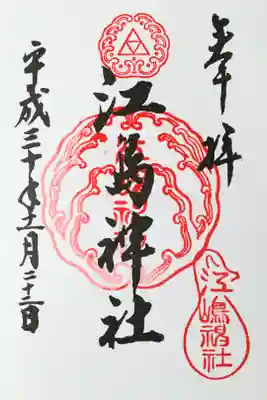 奉拝
江島神社
平成三十年十一月二十三日
江嶋神社